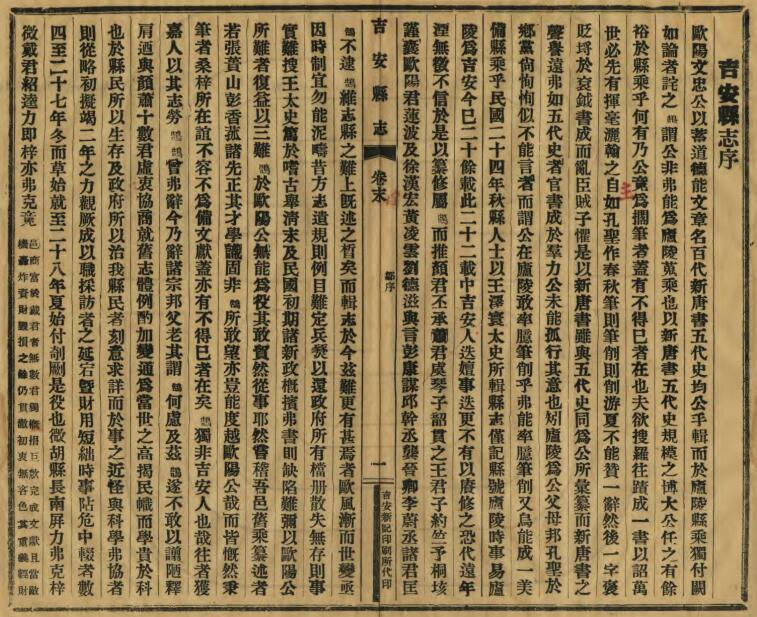 吉安縣志序
歐陽文忠公以蓄道德能文章名百代新唐書五代史均公手輯而於廬陵縣乘獨付闕
如論者詫之鵠謂公非弗能爲廬陵蒐乘也以新唐書五代史規模之博大公任之有餘
裕於縣乘乎何有乃公竟爲擱筆者蓋有不得已者在也夫欲搜羅往蹟成一書以詔萬
世必先有揮毫灑翰之自主如孔聖作春秋筆則筆削則削游夏不能贊一辭然後一字褒
貶埓於袞鉞書成而亂臣賊子懼是以新唐書雖與五代史同爲公所彙纂而新唐書之
聲譽遠弗如五代史者官書成於羣力公未能孤行其意也矧廬陵爲公父母邦孔聖於
鄉黨尙恂恂似不能言者而謂公在廬陵敢率臆筆削乎弗能率臆筆削又烏能成一美
備縣乘乎民國二十四年秋縣人士以王澤寰太史所輯縣志僅記縣號廬陵時事易廬
陵爲吉安今已二十餘載此二十二載中吉安人迭嬗事迭更不有以賡修之恐代遠年
湮無徵不信於是以纂修屬鵠而推顏君丕承蕭君虞琴子韶貫之王君子約竺予桐垓
謹襄歐陽君蓮波及徐漢宏黃凌雲劉德滋與言彭康謀邱幹丞龔晉卿李蔚丞諸君匡
鵠不逮鵠維志縣之難上旣述之晢矣而輯志於今茲難更有甚焉者歐風漸而世變亟
因時制宜勿能泥疇昔方志遺規則例目難定兵燹以還政府所有檔册散失無存則事
實難搜王太史篤於嗜古舉清末及民國初期諸新政槪擯弗書則缺陷難彌以歐陽公
所難者復益以三難鵠於歐陽公無能爲役其敢貿然從事耶然嘗稽吾邑舊乘纂述者
若張簣山彭香蓀諸先正其才學識固非鵠所敢望亦豈能度越歐陽公哉而皆慨然秉
筆者桑梓所在誼不容不爲備文獻蓋亦有不得已者在矣鵠獨非吉安人也哉往者獲
嘉人以其志勞鵠鵠曾弗辭今乃辭諸宗邦父老其謂鵠何慮及茲鵠遂不敢以譾陋釋
肩迺與顏蕭十數君虛衷協商就舊志體例酌加變通爲當世之高揭民幟而學貴於科
也於縣民所以生存及政府所以治我縣民者刻意求詳而於事之近怪與科學弗協者
則從略初擬竭二年之力觀厥成以職採訪者之延宕曁財用短絀時事阽危中輟者數
四至二十七年冬而草始就至二十八年夏始付剞劂是役也微胡縣長南屏力弗克梓
微戴君紹逵力即梓亦弗克竟
邑商富於戴君者無數君獨慨捐巨欵完成文獻且當敵
機轟炸資財毀損之餘仍貫徹初衷無吝色其重義輕財
吉安縣志
卷末
鄒序
一
吉安新記印刷所代印